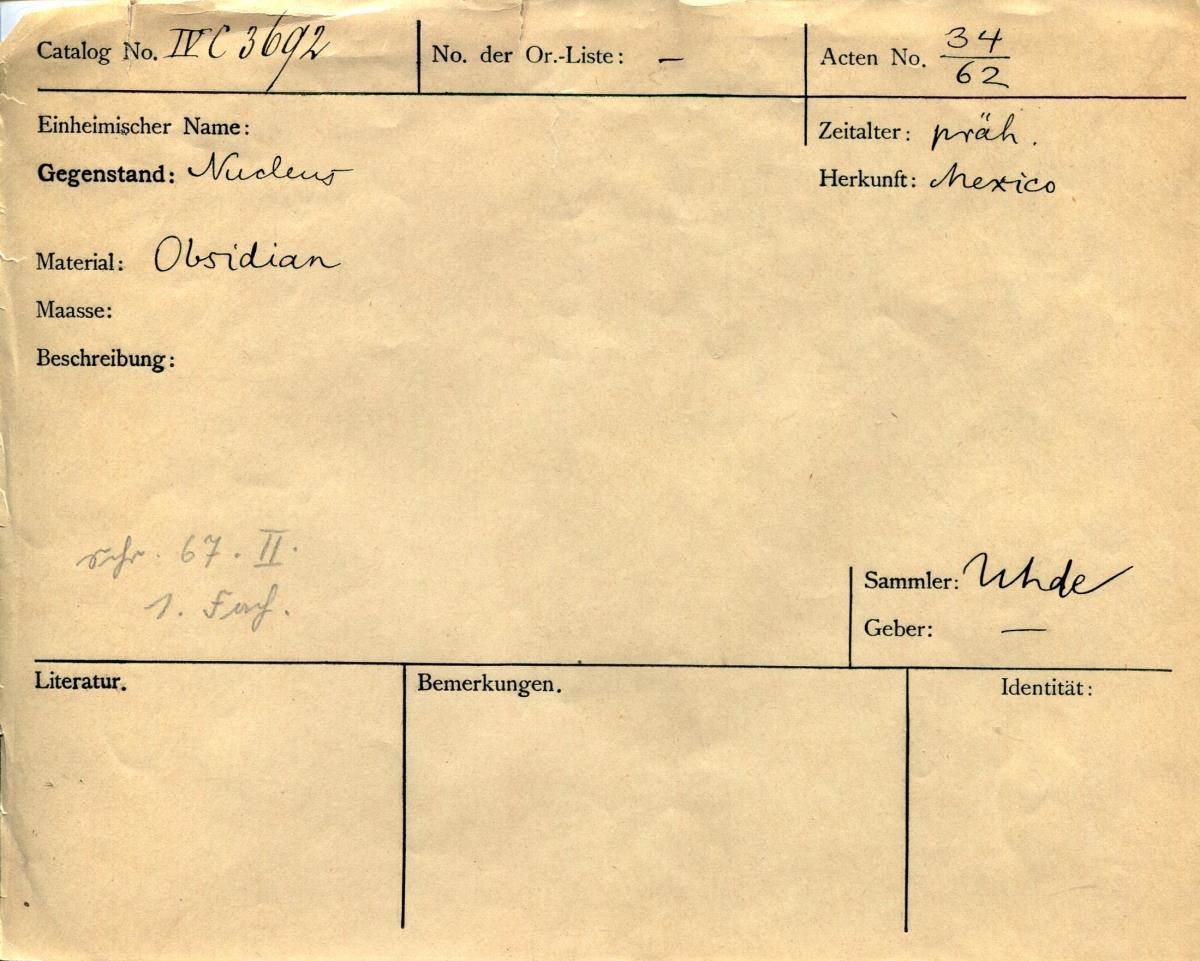 Catalog No. IV C 3692 No. der Or.-Liste: — Acten No. 34/62
Einheimischer Name: Zeitalter: präh.
Gegenstand: Nucleus Herkunft: Mexico
Material: Obsidian
Maasse:
Beschreibung:
Schr. 67. II.
1. Fach.
Sammler: Uhde
Geber: —
Literatur. Bemerkungen. Identität: